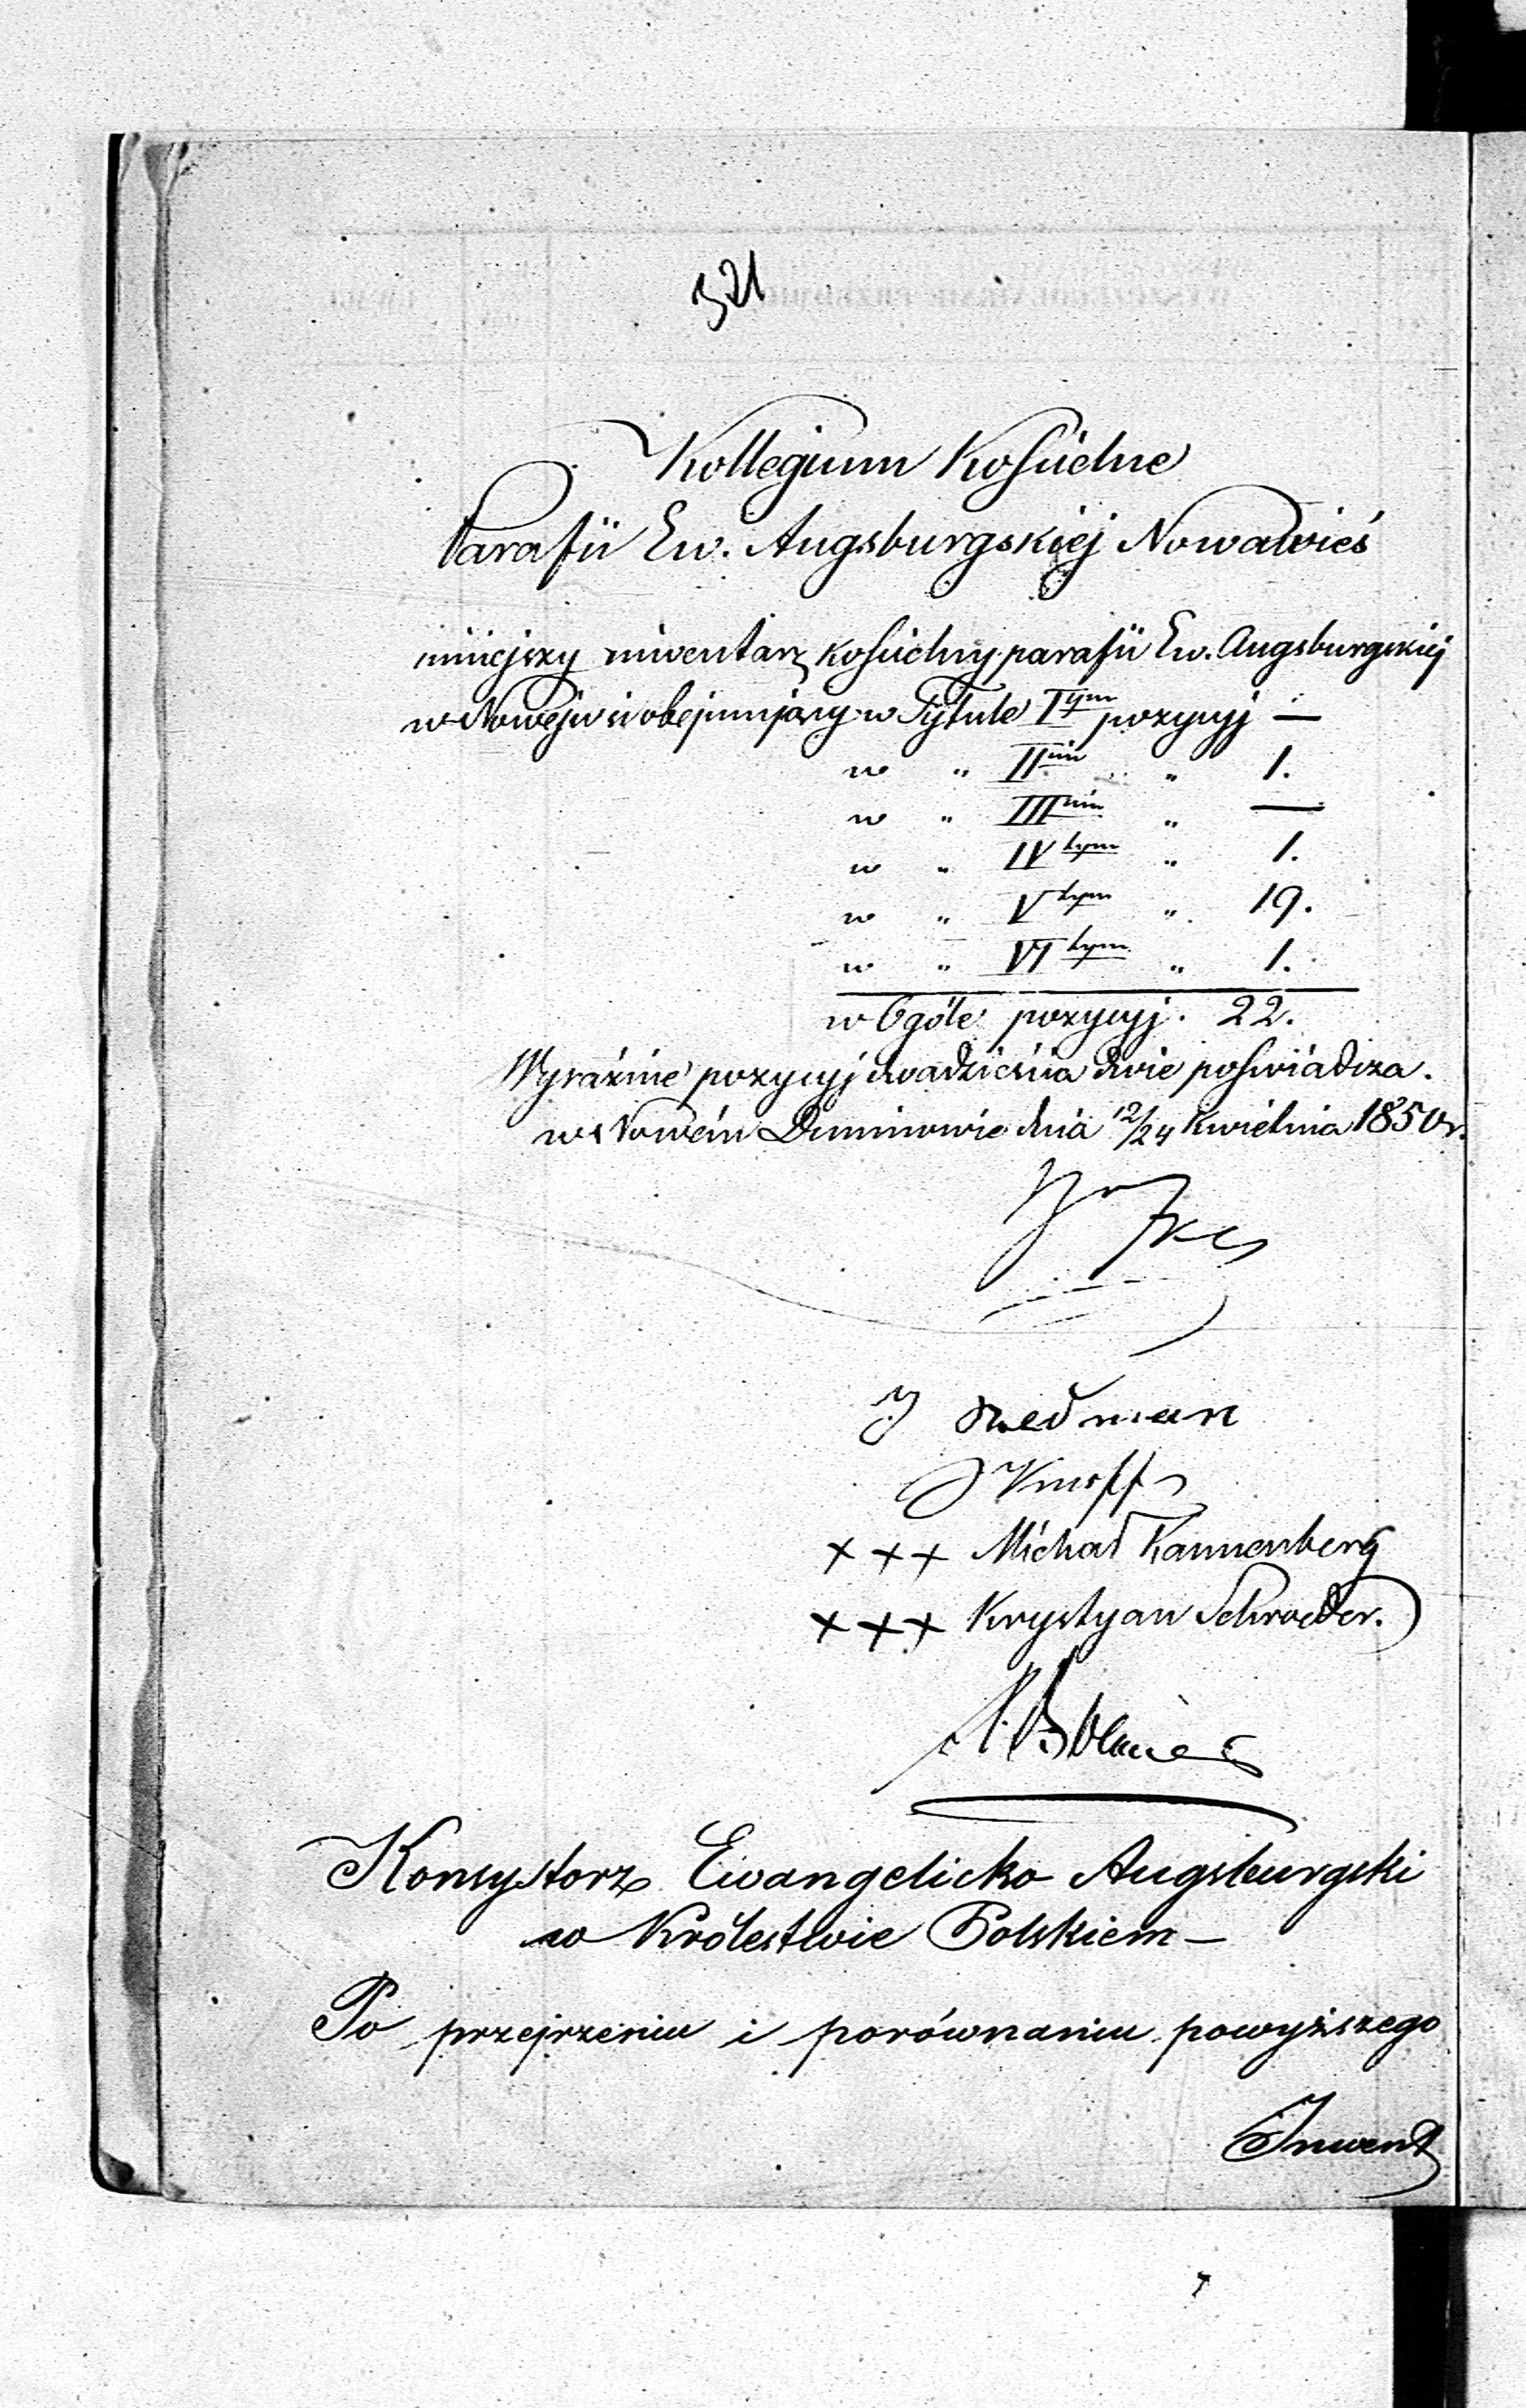 321
Kollegium Kościelne
Parafii Ew. Augsburgskiej Nowawieś
niniejszy inwentarz kościelny parafii Ew. Augsburgskiej
w Nowejwsi obejmujący w Tytule I<sup>ym</sup> pozycyj —
w " II<sup>im</sup> " 1.
w " III<sup>im</sup> " —
w " IV<sup>tym</sup> " 1.
w " V<sup>tym</sup> " 19.
w " VI<sup>tym</sup> " 1.
w Ogóle pozycyj. 22.
Wyraźnie pozycyj dwadzieścia dwie poświadcza.
w Nowém Duninowie dnia 12/24 Kwietnia 1850 r.
J
J Knopf
+++ Michał Kannenberg
+++ Krystyan Schroeder.
Konsystorz Ewangelicko Augsburgski
w Królestwie Polskiem —
Po przejrzeniu i porównaniu powyższego
Inwent